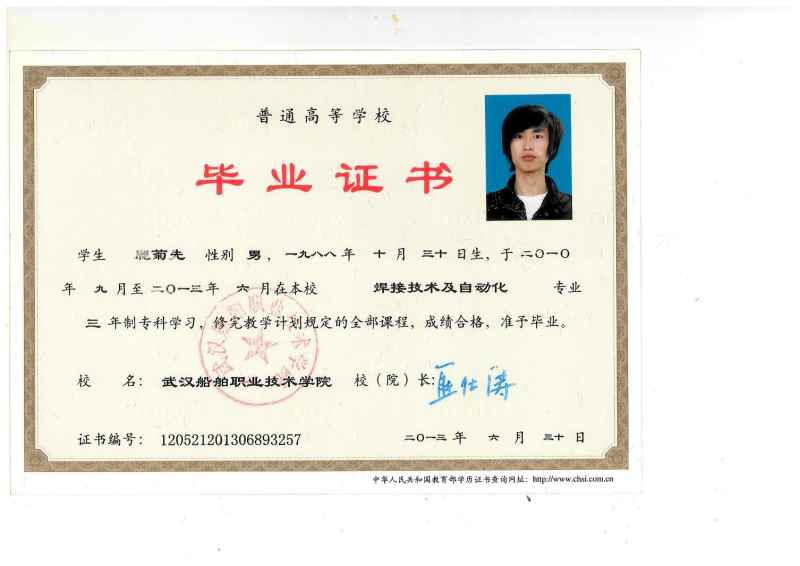 普通高等学校
毕业证书
学生 菊先 性别 男，一九八八年 十月 三十日生，于二〇一〇
年 九月至二〇一三年 六月在本校 焊接技术及自动化 专业
三年制专科学习，修完教学计划规定的全部课程，成绩合格，准予毕业。
校 名： 武汉船舶职业技术学院 校（院）长：
证书编号： 120521201306893257 二〇一三年 六月 三十日
中华人民共和国教育部学历证书查询网址：http://www.chsi.com.cn